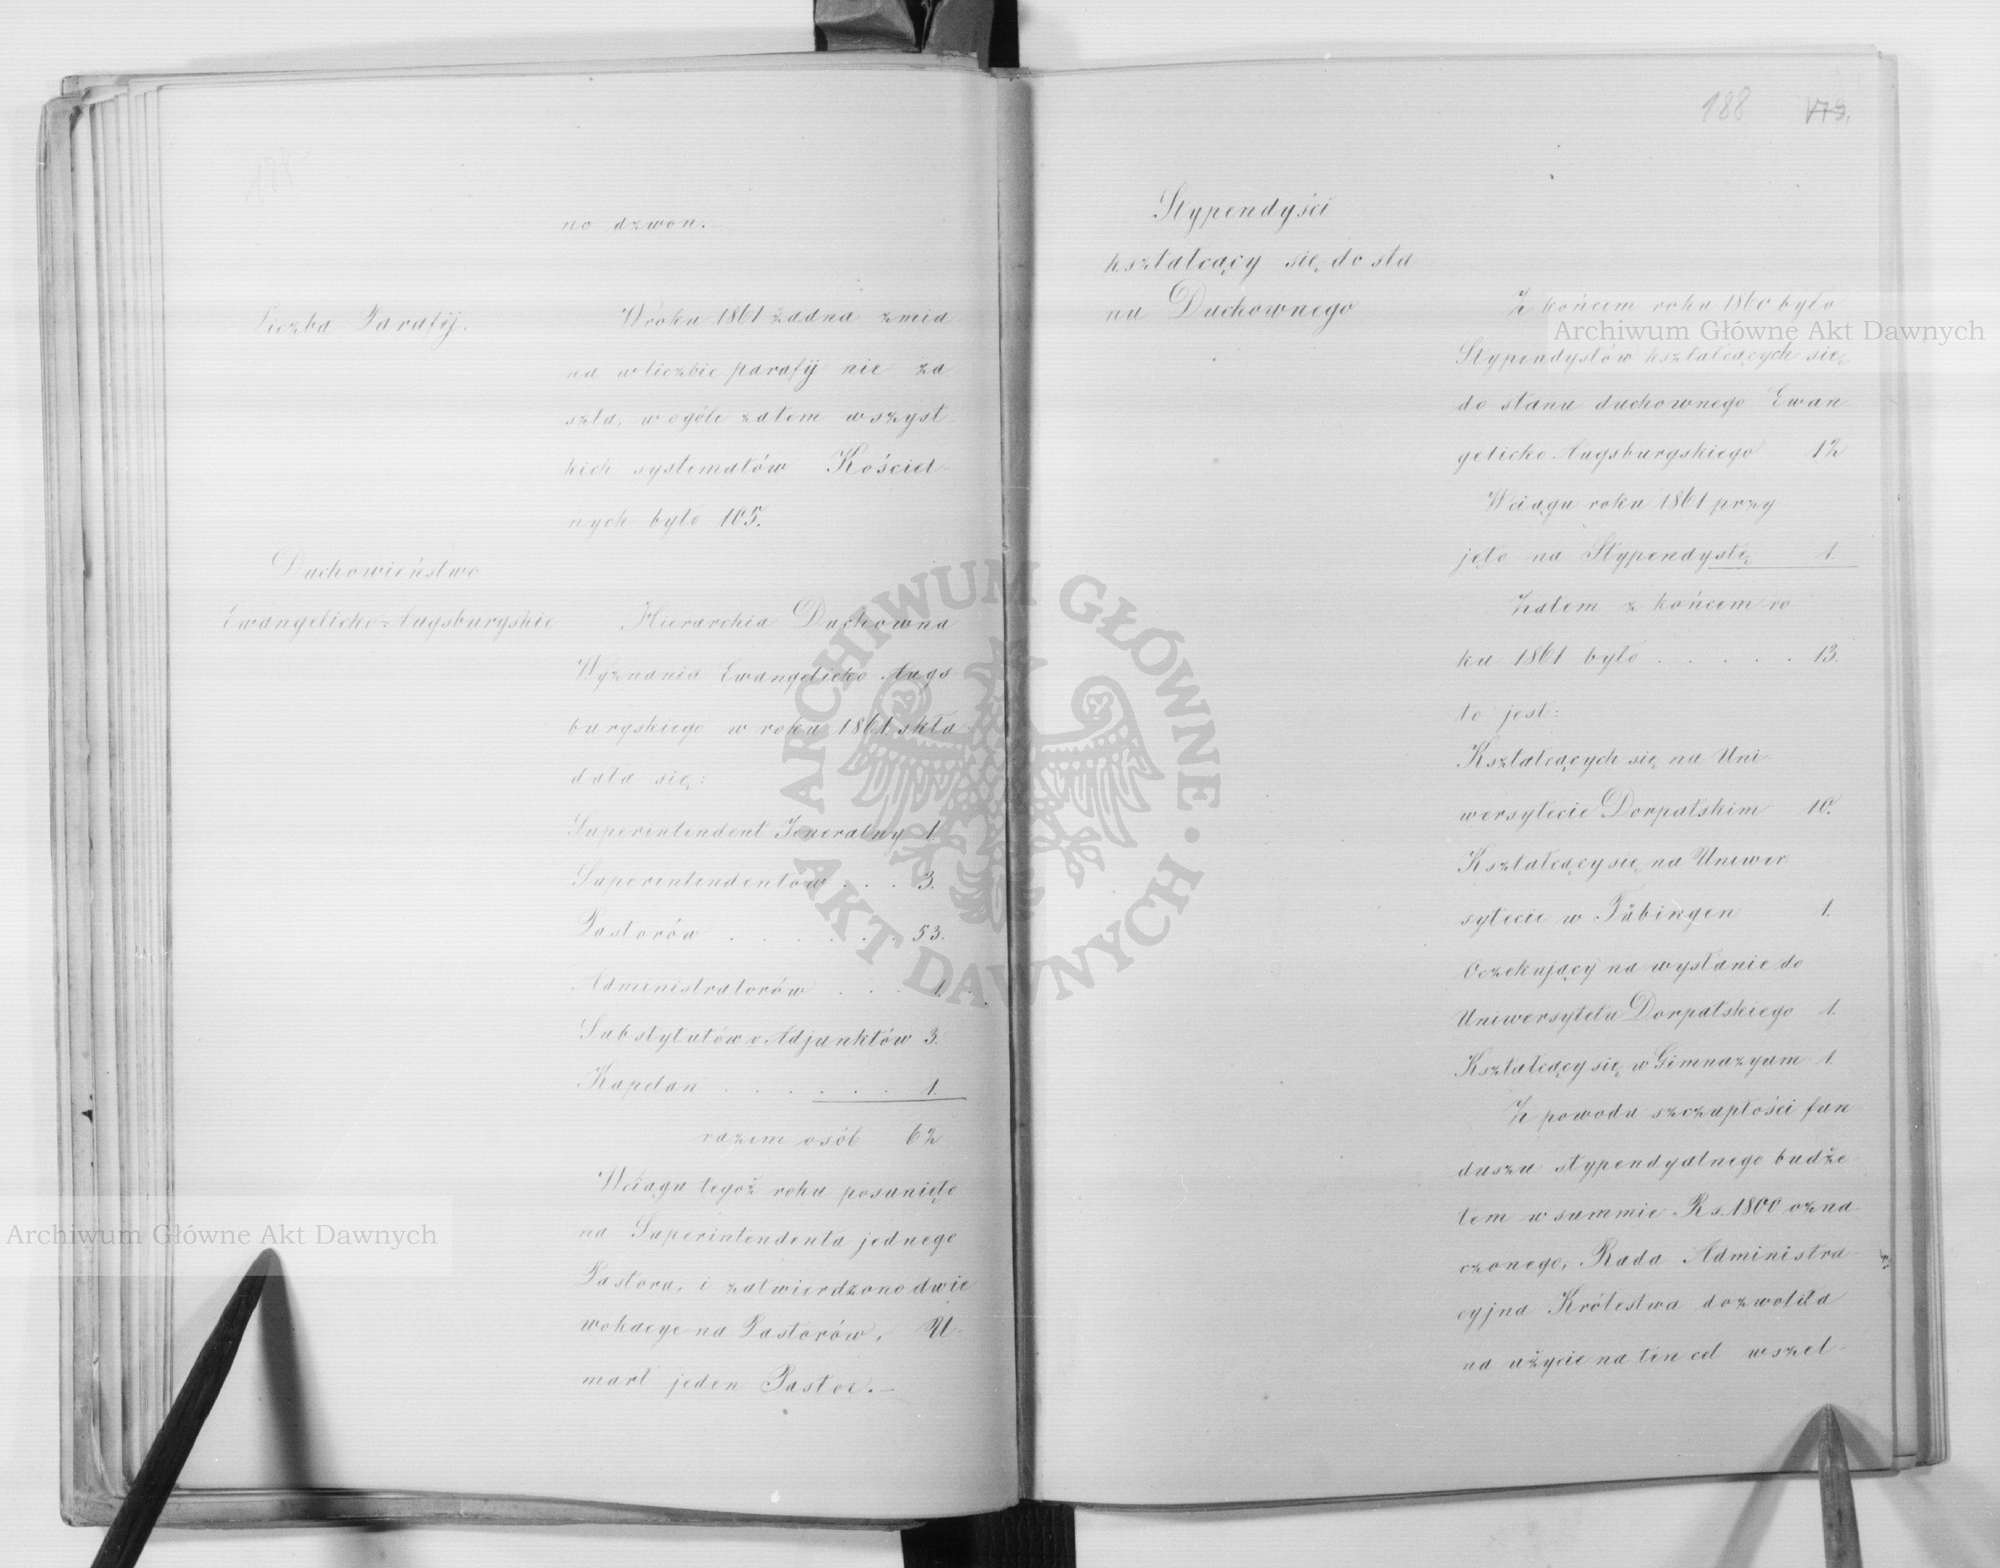 no dzwon.
Liczba Parafij.
W roku 1861 żadna zmia
na w liczbie parafij nie za
szła, w ogóle zatem wszyst-
kich systematów Kościel-
nych było 105.
Duchowieństwo
Ewangelicko=Augsburgskie
Hierarchia Duchowna
Wyznania Ewangelicko Augs-
burgskiego w roku 1861 skła-
dała się:
Superintendent Jeneralny 1.
Superintendentów . . . 3.
Pastorów . . . . . . 53.
Administratorów . . . 1.
Substytutów v Adjunktów 3.
Kapelan . . . . . . 1.
razem osób 62
W ciągu tegoż roku posunięto
na Superintendenta jednego
Pastora, i zatwierdzono dwie
wokacye na Pastorów, U-
marł jeden Pastor.—
188 179.
Stypendyści
kształcący się do sta
nu Duchownego
Z końcem roku 1860 było
Stypendystów kształcących się
do stanu duchownego Ewan-
gelicko Augsburgskiego 12
W ciągu roku 1861 przy
jęto na Stypendystę 1.
Zatem z końcem ro
ku 1861 było . . . . . 13.
to jest:
Kształcących się na Uni-
wersytecie Dorpatskim 10.
Kształcący się na Uniwer
sytecie w Tübingen 1.
Oczekujący na wysłanie do
Uniwersytetu Dorpatskiego 1.
Kształcący się w Gimnazyum 1.
Z powodu szczupłości fun-
duszu stypendyalnego budże-
tem w summie Rs. 1800 ozna-
czonego, Rada Administra-
cyjna Królestwa dozwoliła
na użycie na ten cel wszel-
Archiwum Główne Akt Dawnych
Archiwum Główne Akt Dawnych
ARCHIWUM GŁÓWNE AKT DAWNYCH